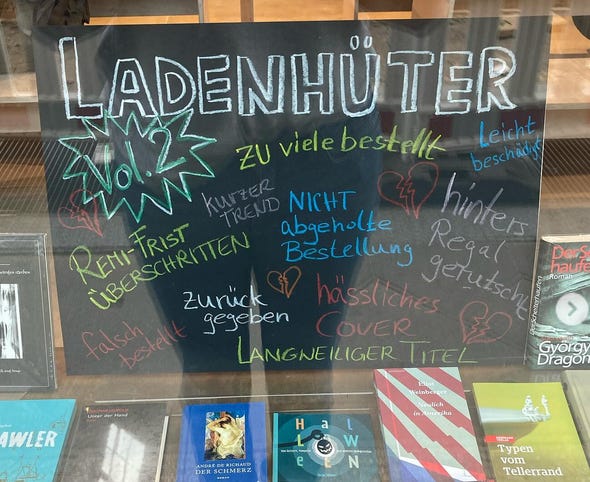 LADENHÜTER
Vol. 2
ZU viele bestellt
Leicht
beschädigt
KURZER
TREND
NICHT
abgeholte
Bestellung
hinters
Regal
gerutscht
REMI-FRIST
ÜBERSCHRITTEN
zurück
gegeben
hässliches
COVER
falsch
bestellt
LANGWEILIGER TITEL
Roman
György
Dragom
AWLER
Unter der Hand
ANDRÉ DE RICHAUD
DER SCHMERZ
ROMAN
Hal
Low
een
Eliot
Weinberger
Neulich
in Amerika
Typen
vom
Tellerrand